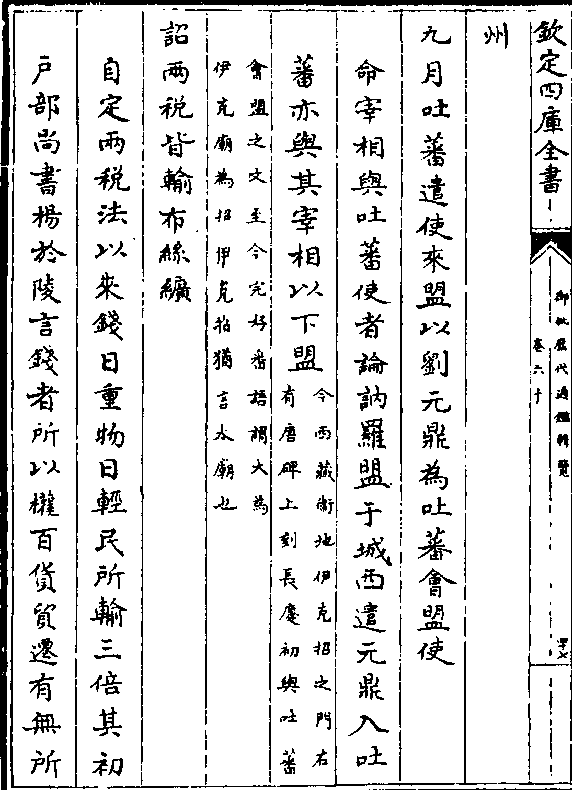 欽定四庫全書
御批歷代通鑑輯覽
卷六十
州
九月吐蕃遣使來盟以劉元鼎為吐蕃會盟使
命宰相與吐蕃使者論訥羅盟于城西遣元鼎入吐
蕃亦與其宰相以下盟
今西藏衛地伊克招之門右
有唐碑上刻長慶初與吐蕃
會盟之文至今完好番語謂大為
伊克廟為招伊克招猶言大廟也
詔兩税皆輸布絲纊
自定兩税法以來錢日重物日輕民所輸三倍其初
户部尚書楊於陵言錢者所以權百貨貿遷有無所